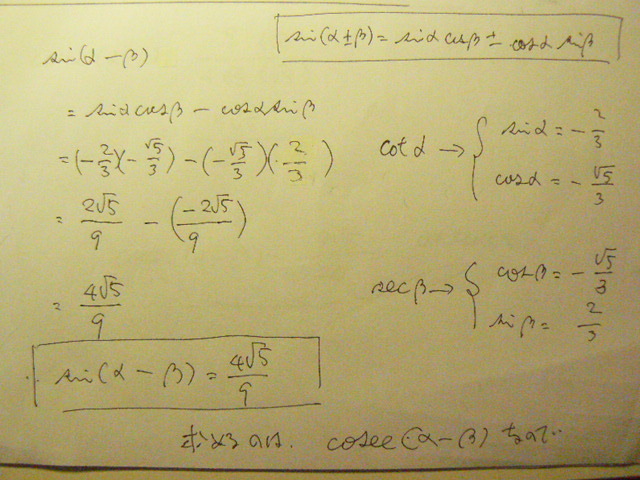 sin(α±β)=sinα cosβ ± cosα sinβ
sin(α-β)
= sinα cosβ - cosα sinβ
= (-2/3)(-√5/3) - (-√5/3)(2/3)
= 2√5/9 - (-2√5/9)
= 4√5/9
sin(α-β) = 4√5/9
cotα → { sinα = -2/3
cosα = -√5/3
secβ → { cosβ = -√5/3
sinβ = 2/3
求めるのは. cosec(α-β) なので..